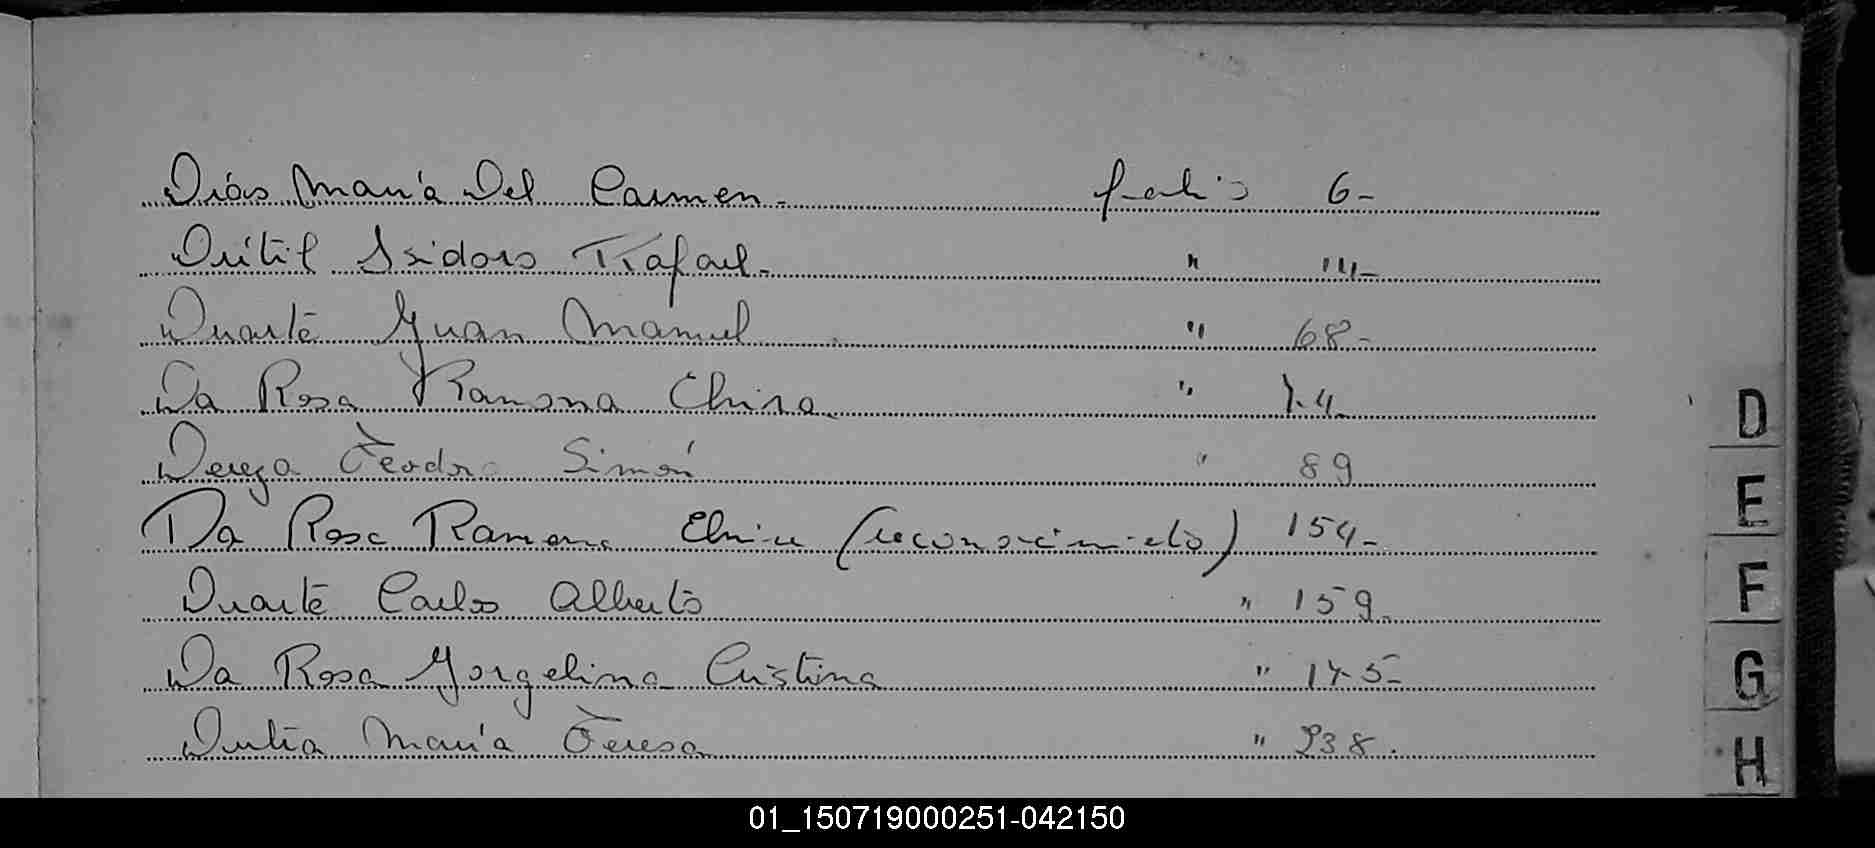 Diás María Del Carmen. folio 6-
Dutil Isidoro Rafael. " 14-
Duarte Juan Manuel " 68-
Da Rosa Ramona Elvira. " 74-
Dereza Teodoro Simón " 89
Da Rosa Ramona Elvira (reconocimiento) 154-
Duarte Carlos Alberto " 159.
Da Rosa Jorgelina Cristina " 175-
María Teresa " 238.
D
E
F
G
H
01_150719000251-042150